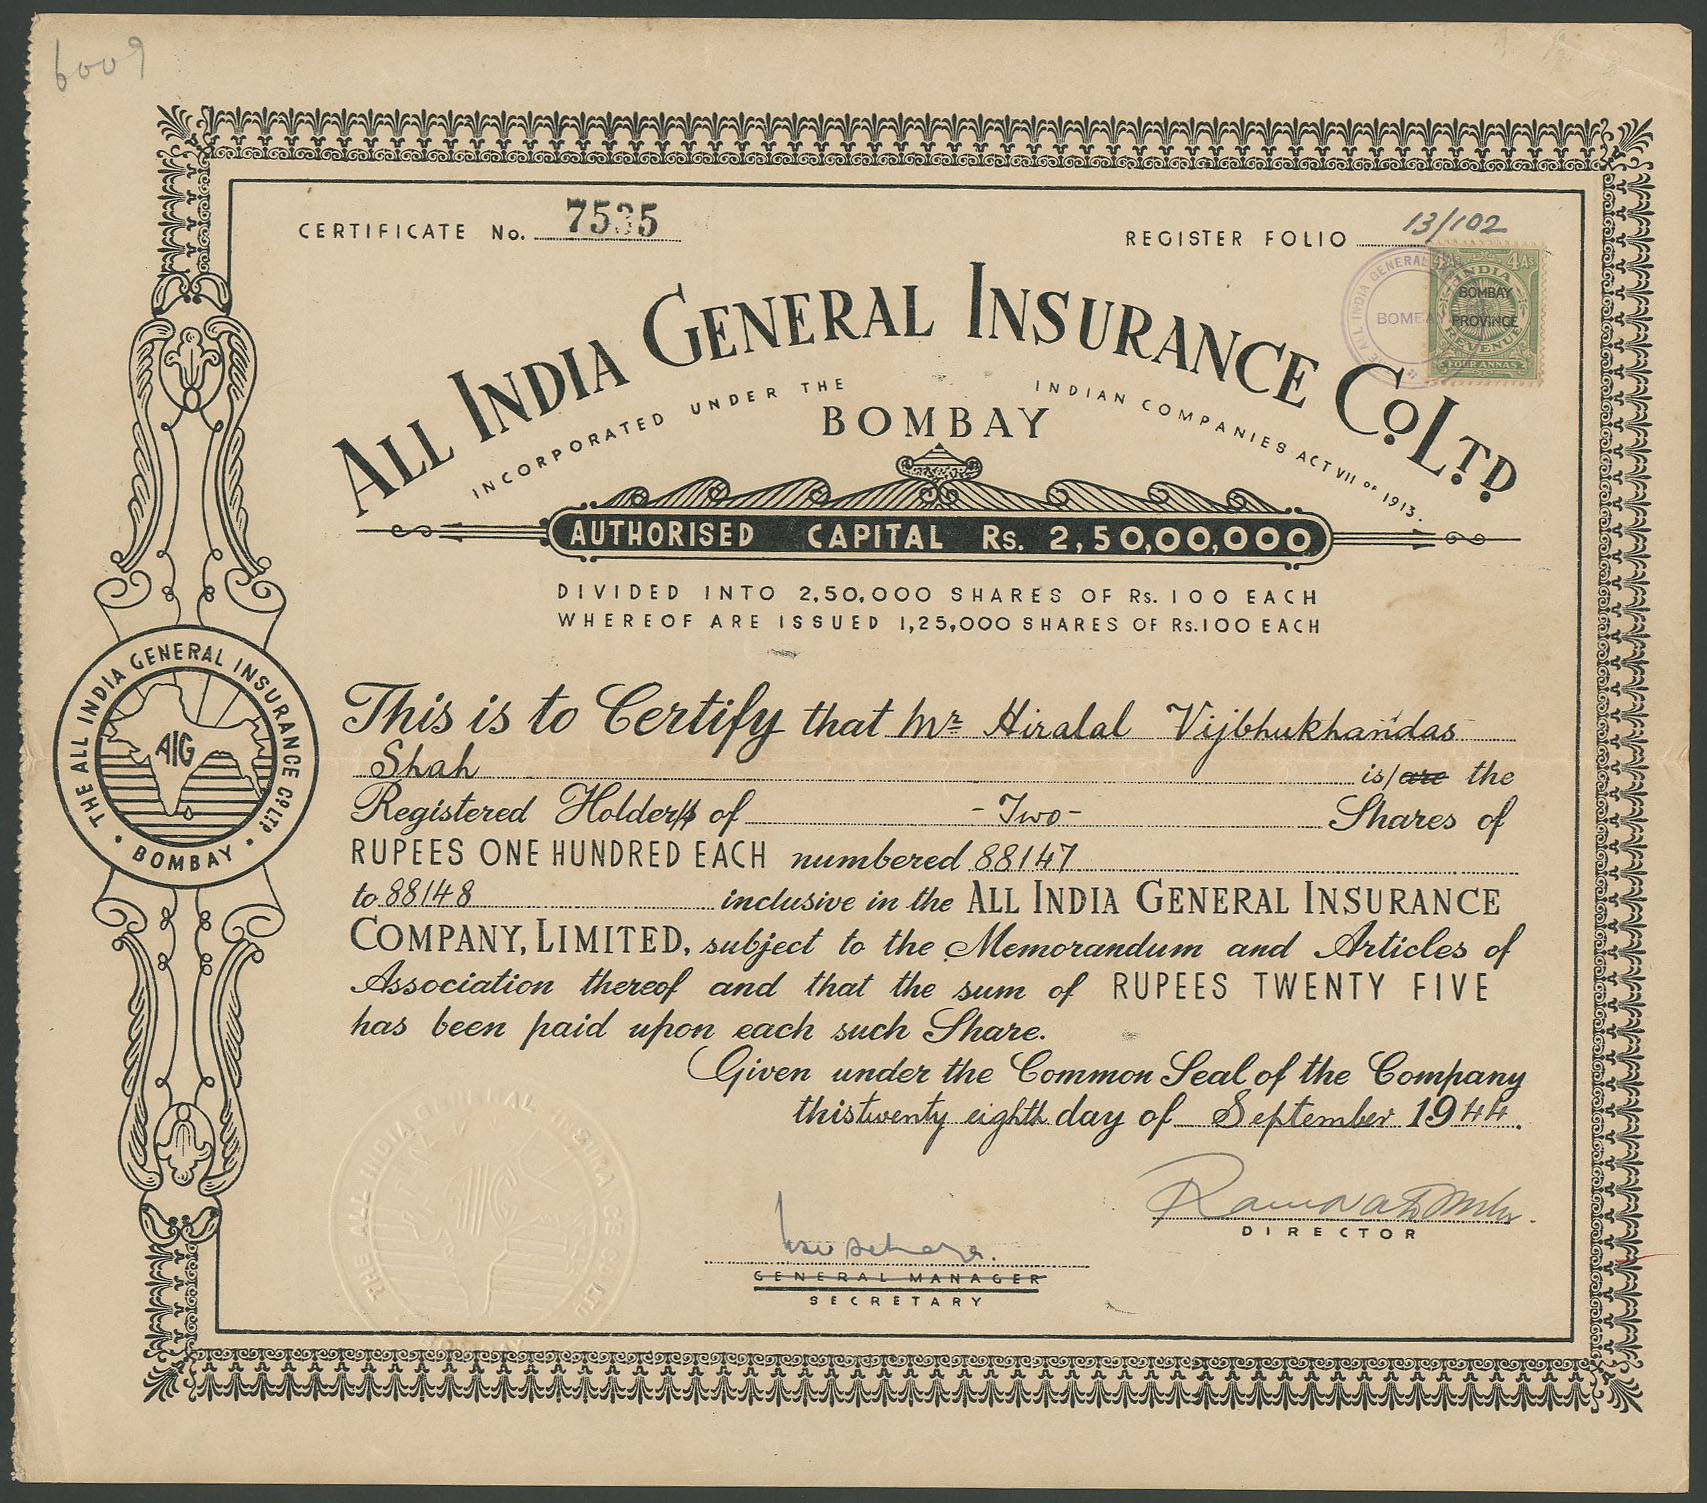 6009
CERTIFICATE No. 7535
REGISTER FOLIO 13/102
4 As 4 As
INDIA
BOMBAY
PROVINCE
REVENUE
FOUR ANNAS
ALL INDIA GENERAL
BOMBAY
ALL INDIA GENERAL INSURANCE Co LTD
INCORPORATED UNDER THE INDIAN COMPANIES ACT VII OF 1913.
BOMBAY
AUTHORISED CAPITAL Rs. 2,50,00,000
DIVIDED INTO 2,50,000 SHARES OF Rs. 100 EACH
WHEREOF ARE ISSUED 1,25,000 SHARES OF Rs. 100 EACH
This is to Certify that Mr Hiralal Vijbhukhandas
Shah is/are the
Registered Holder/s of - Two - Shares of
RUPEES ONE HUNDRED EACH numbered 88147
to 88148 inclusive in the ALL INDIA GENERAL INSURANCE
COMPANY, LIMITED, subject to the Memorandum and Articles of
Association thereof and that the sum of RUPEES TWENTY FIVE
has been paid upon each such Share.
Given under the Common Seal of the Company
this twenty eighth day of September 1944.
DIRECTOR
GENERAL MANAGER
SECRETARY
THE ALL INDIA GENERAL INSURANCE Co LTD
AIG
BOMBAY
THE ALL INDIA GENERAL INSURANCE LTD